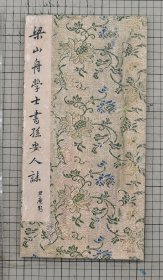 梁山舟學士書孫安人誌